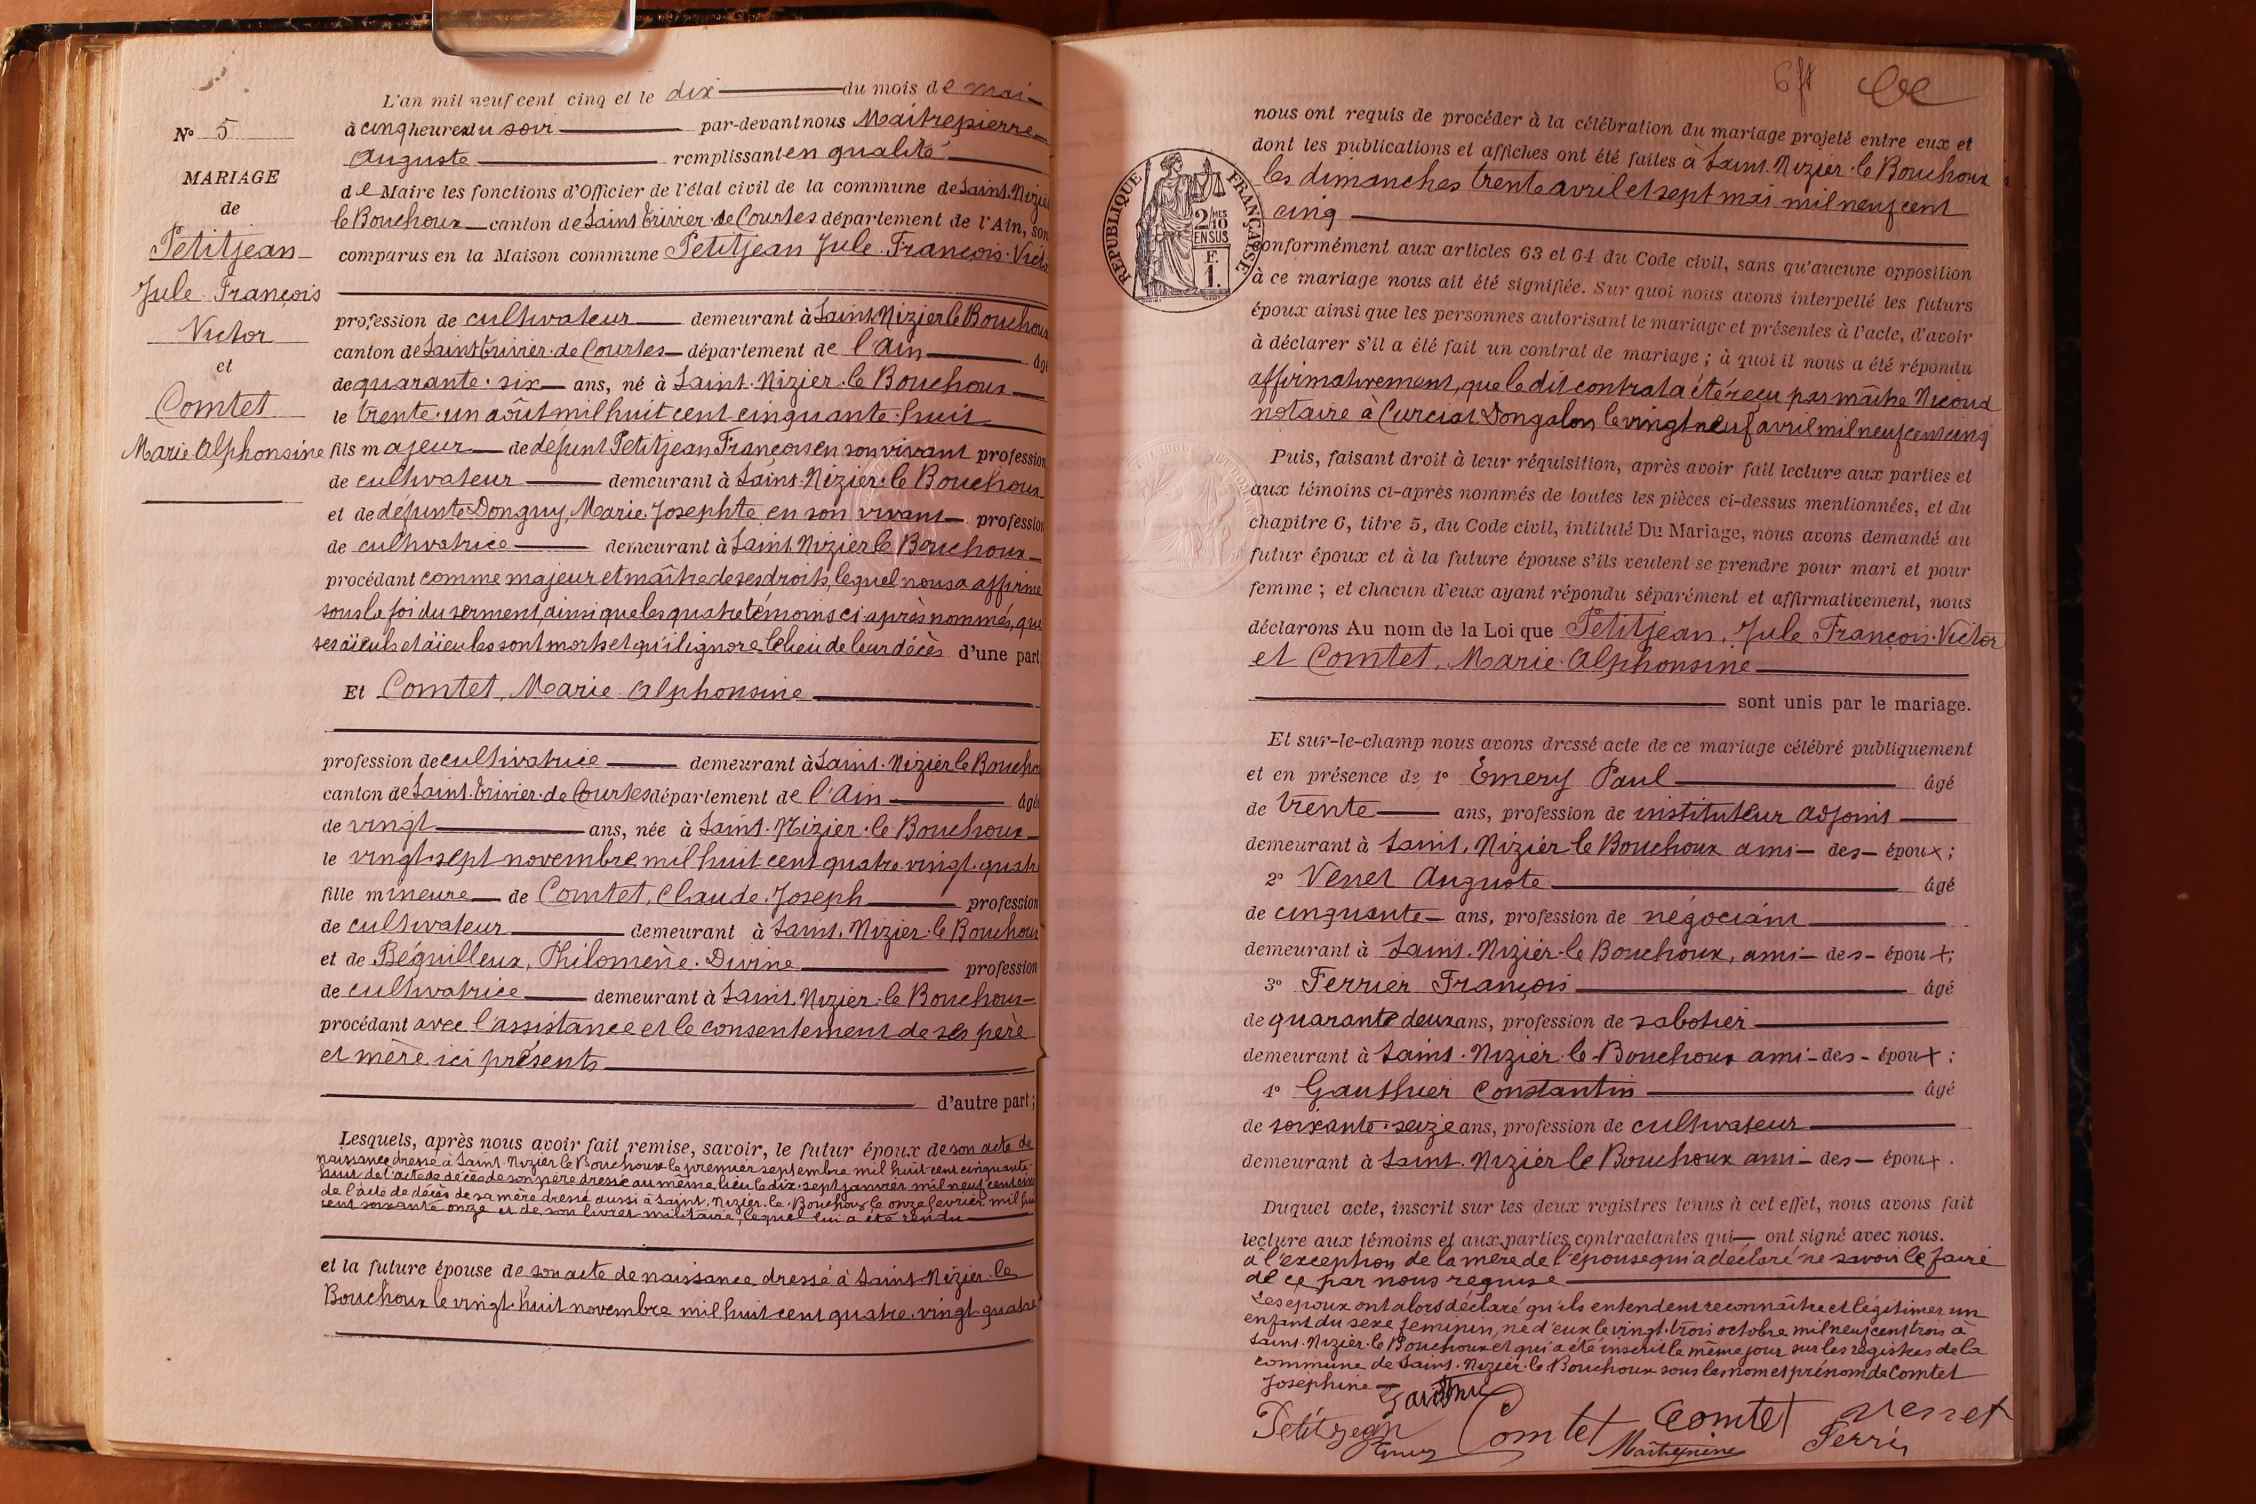 L'an mil neuf cent cinq et le dix du mois de mai
à cinq heures du soir par-devant nous Maîtrepierre
Auguste remplissant en qualité
de Maire les fonctions d'Officier de l'état civil de la commune de Saint-Nizier
le Bouchoux canton de Saint Trivier-de Courtes département de l'Ain, son
comparus en la Maison commune Petitjean Jule François Vict
profession de cultivateur demeurant à Saint-Nizier le Bouchoux
canton de Saint Trivier-de Courtes département de l'Ain âgé
de quarante-six ans, né à Saint-Nizier-le Bouchoux
le trente-un août mil huit cent cinquante-huit
fils majeur de défunt Petitjean François en son vivant profession
de cultivateur demeurant à Saint-Nizier-le Bouchoux
et de défunte Donguy, Marie Josephte en son vivant profession
de cultivatrice demeurant à Saint Nizier le Bouchoux
procédant comme majeur et maître de ses droits, lequel nous a affirmé
sous la foi du serment, ainsi que les quatre témoins ci-après nommés, que
ses aïeuls et aïeules sont morts et qu'il ignore le lieu de leur décès d'une part
Et Comtet, Marie Alphonsine
profession de cultivatrice demeurant à Saint-Nizier le Boucho
canton de Saint-Trivier-de Courtes département de l'Ain âgé
de vingt ans, née à Saint-Nizier-le Bouchoux
le vingt-sept novembre mil huit cent quatre-vingt-quatr
fille mineure de Comtet, Claude Joseph profession
de cultivateur demeurant à Saint, Nizier-le Bouchoux
et de Béguilleux, Philomène Divine profession
de cultivatrice demeurant à Saint Nizier-le Bouchoux
procédant avec l'assistance et le consentement de ses père
et mère ici présents
d'autre part;
Lesquels, après nous avoir fait remise, savoir, le futur époux de son acte de
naissance dressé à Saint Nizier le Bouchoux le premier septembre mil huit cent cinquante
huit de l'acte de décès de son père dressé au même lieu le dix-sept janvier mil neuf cent
de l'acte de décès de sa mère dressé aussi à Saint-Nizier-le-Bouchoux le onze février mil hui
cent soixante onze et de son livret militaire, lequel lui a été rendu
et la future épouse de son acte de naissance dressé à Saint-Nizier-le
Bouchoux le vingt-huit novembre mil huit cent quatre-vingt-quatre
N° 5
MARIAGE
de
Petitjean
Jule François
Victor
et
Comtet
Marie Alphonsine
nous ont requis de procéder à la célébration du mariage projeté entre eux et
dont les publications et affiches ont été faites à Saint-Nizier-le Bouchoux
les dimanches trente avril et sept mai mil neuf cent
cinq
conformément aux articles 63 et 64 du Code civil, sans qu'aucune opposition
à ce mariage nous ait été signifiée. Sur quoi nous avons interpellé les futurs
époux ainsi que les personnes autorisant le mariage et présentes à l'acte, d'avoir
à déclarer s'il a été fait un contrat de mariage ; à quoi il nous a été répondu
affirmativement, que le dit contrat a été reçu par maître Nicoud
notaire à Curciat Dongalon le vingt neuf avril mil neuf cent cinq
Puis, faisant droit à leur réquisition, après avoir fait lecture aux parties et
aux témoins ci-après nommés de toutes les pièces ci-dessus mentionnées, et du
chapitre 6, titre 5, du Code civil, intitulé Du Mariage, nous avons demandé au
futur époux et à la future épouse s'ils veulent se prendre pour mari et pour
femme ; et chacun d'eux ayant répondu séparément et affirmativement, nous
déclarons Au nom de la Loi que Petitjean, Jule François-Victor
et Comtet, Marie Alphonsine
sont unis par le mariage.
Et sur-le-champ nous avons dressé acte de ce mariage célébré publiquement
et en présence de 1° Émery Paul âgé
de trente ans, profession de instituteur adjoint
demeurant à Saint, Nizier-le Bouchoux ami des époux ;
2° Venet Auguste âgé
de cinquante ans, profession de négociant
demeurant à Saint-Nizier-le Bouchoux, ami des époux ;
3° Ferrier François âgé
de quarante deux ans, profession de sabotier
demeurant à Saint-Nizier-le-Bouchoux ami des époux ;
4° Gauthier Constantin âgé
de soixante-seize ans, profession de cultivateur
demeurant à Saint-Nizier le Bouchoux ami des époux.
Duquel acte, inscrit sur les deux registres tenus à cet effet, nous avons fait
lecture aux témoins et aux parties contractantes qui ont signé avec nous.
à l'exception de la mère de l'épouse qui a déclaré ne savoir le faire
de ce par nous requise
Les époux ont alors déclaré qu'ils entendent reconnaître et légitimer un
enfant du sexe féminin, né d'eux le vingt-trois octobre mil neuf cent trois à
Saint-Nizier-le Bouchoux et qui a été inscrit le même jour sur les registres de la
commune de Saint-Nizier-le Bouchoux sous les nom et prénom de Comtet
Joséphine
Gauthier
Petitjean Comtet Comtet Venet
Emery Maîtrepierre Ferrier
RÉPUBLIQUE FRANÇAISE
2/10
EN SUS
F.
1.